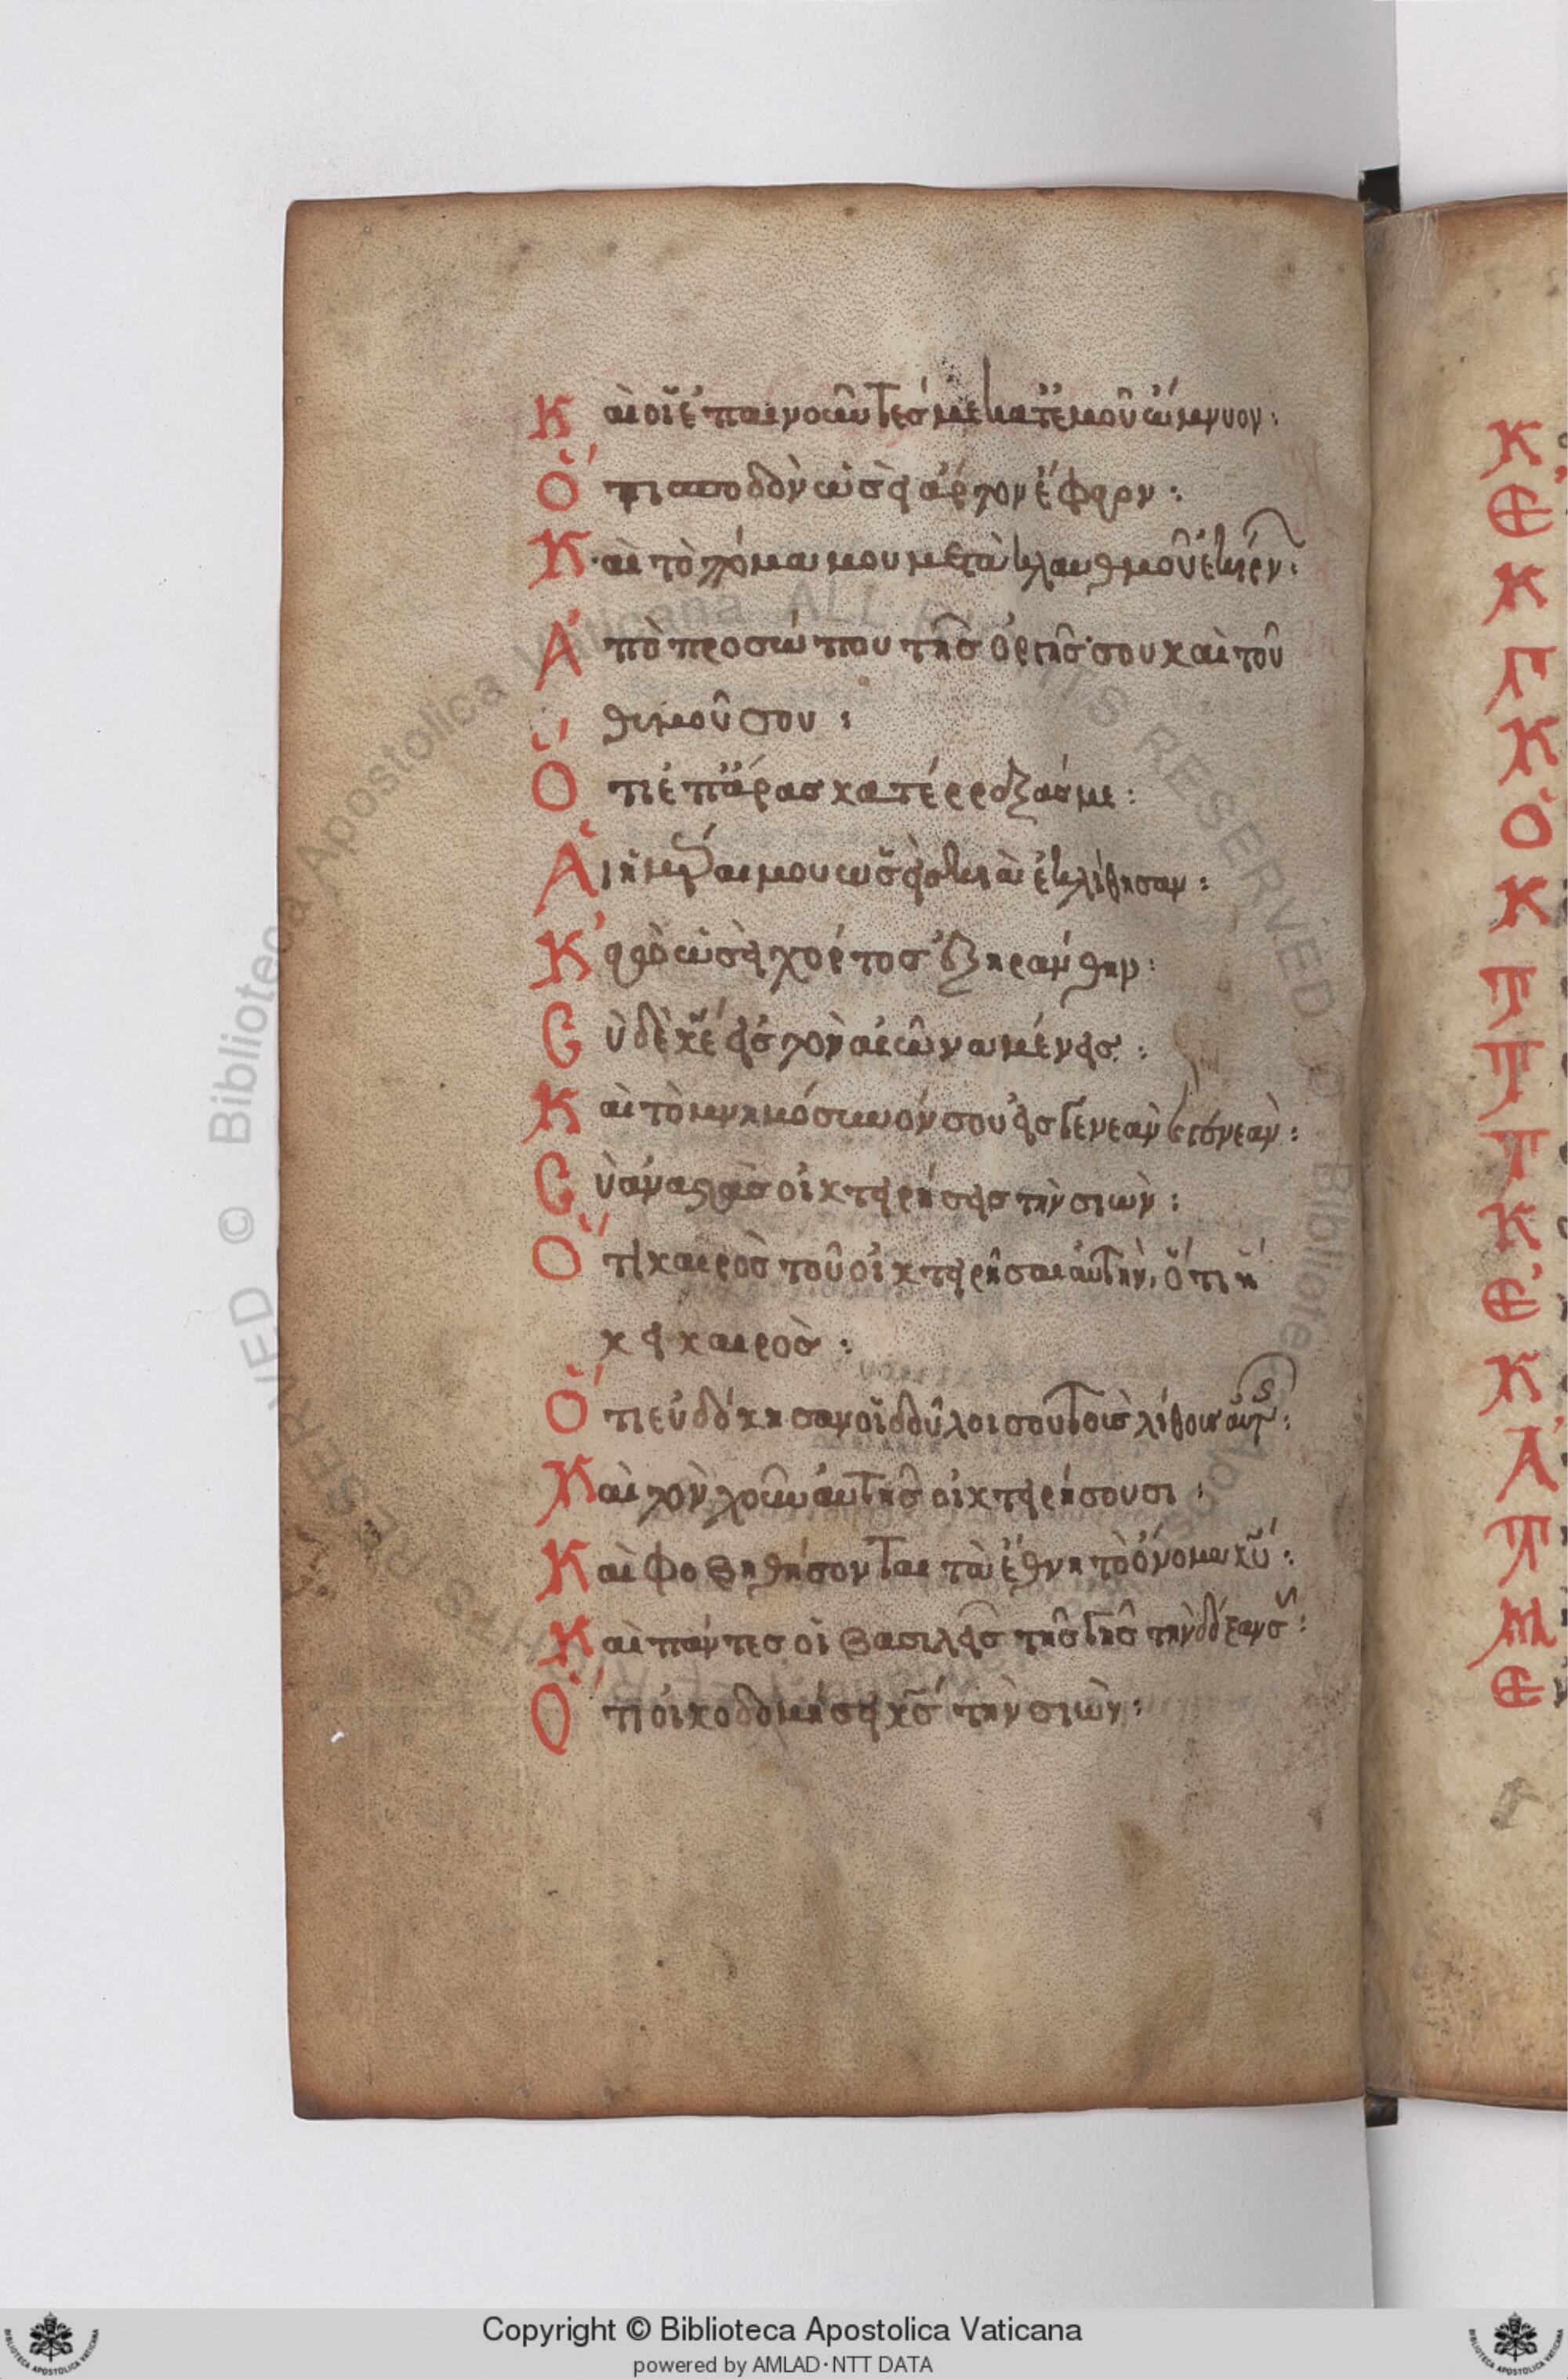 Καὶ οἱ ἐπαινοῦντές με κατ' ἐμοῦ ὤμνυον :
Ὅτι σποδὸν ὡσεὶ ἄρτον ἔφαγον :
Καὶ τὸ πόμα μου μετὰ κλαυθμοῦ ἐκίρνων :
Ἀπὸ προσώπου τῆς ὀργῆς σου καὶ τοῦ
θυμοῦ σου :
Ὅτι ἐπάρας κατέρραξάς με :
Αἱ ἡμέραι μου ὡσεὶ σκιὰ ἐκλίθησαν :
Κἀγὼ ὡσεὶ χόρτος ἐξηράνθην :
Σὺ δὲ κε εἰς τὸν αἰῶνα μένεις :
Καὶ τὸ μνημόσυνόν σου εἰς γενεὰν καὶ γενεάν :
Σὺ ἀναστὰς οἰκτειρήσεις τὴν σιών :
Ὅτι καιρὸς τοῦ οἰκτειρῆσαι αὐτήν, ὅτι ἥ
κει καιρός :
Ὅτι εὐδόκησαν οἱ δοῦλοι σου τοὺς λίθους αὐτῆς :
Καὶ τὸν χοῦν αὐτῆς οἰκτειρήσουσι :
Καὶ φοβηθήσονται τὰ ἔθνη τὸ ὄνομα κυ :
Καὶ πάντες οἱ βασιλεῖς τῆς γῆς τὴν δόξαν σου :
Ὅτι οἰκοδομήσει κς τὴν σιών :
Κ
Ε
Κ
Γ
Κ
Ὁ
Κ
Τ
Τ
Τ
Κ
Ἐ
Κ
Ἀ
Τ
Μ
Ε
Copyright © Biblioteca Apostolica Vaticana
powered by AMLAD·NTT DATA